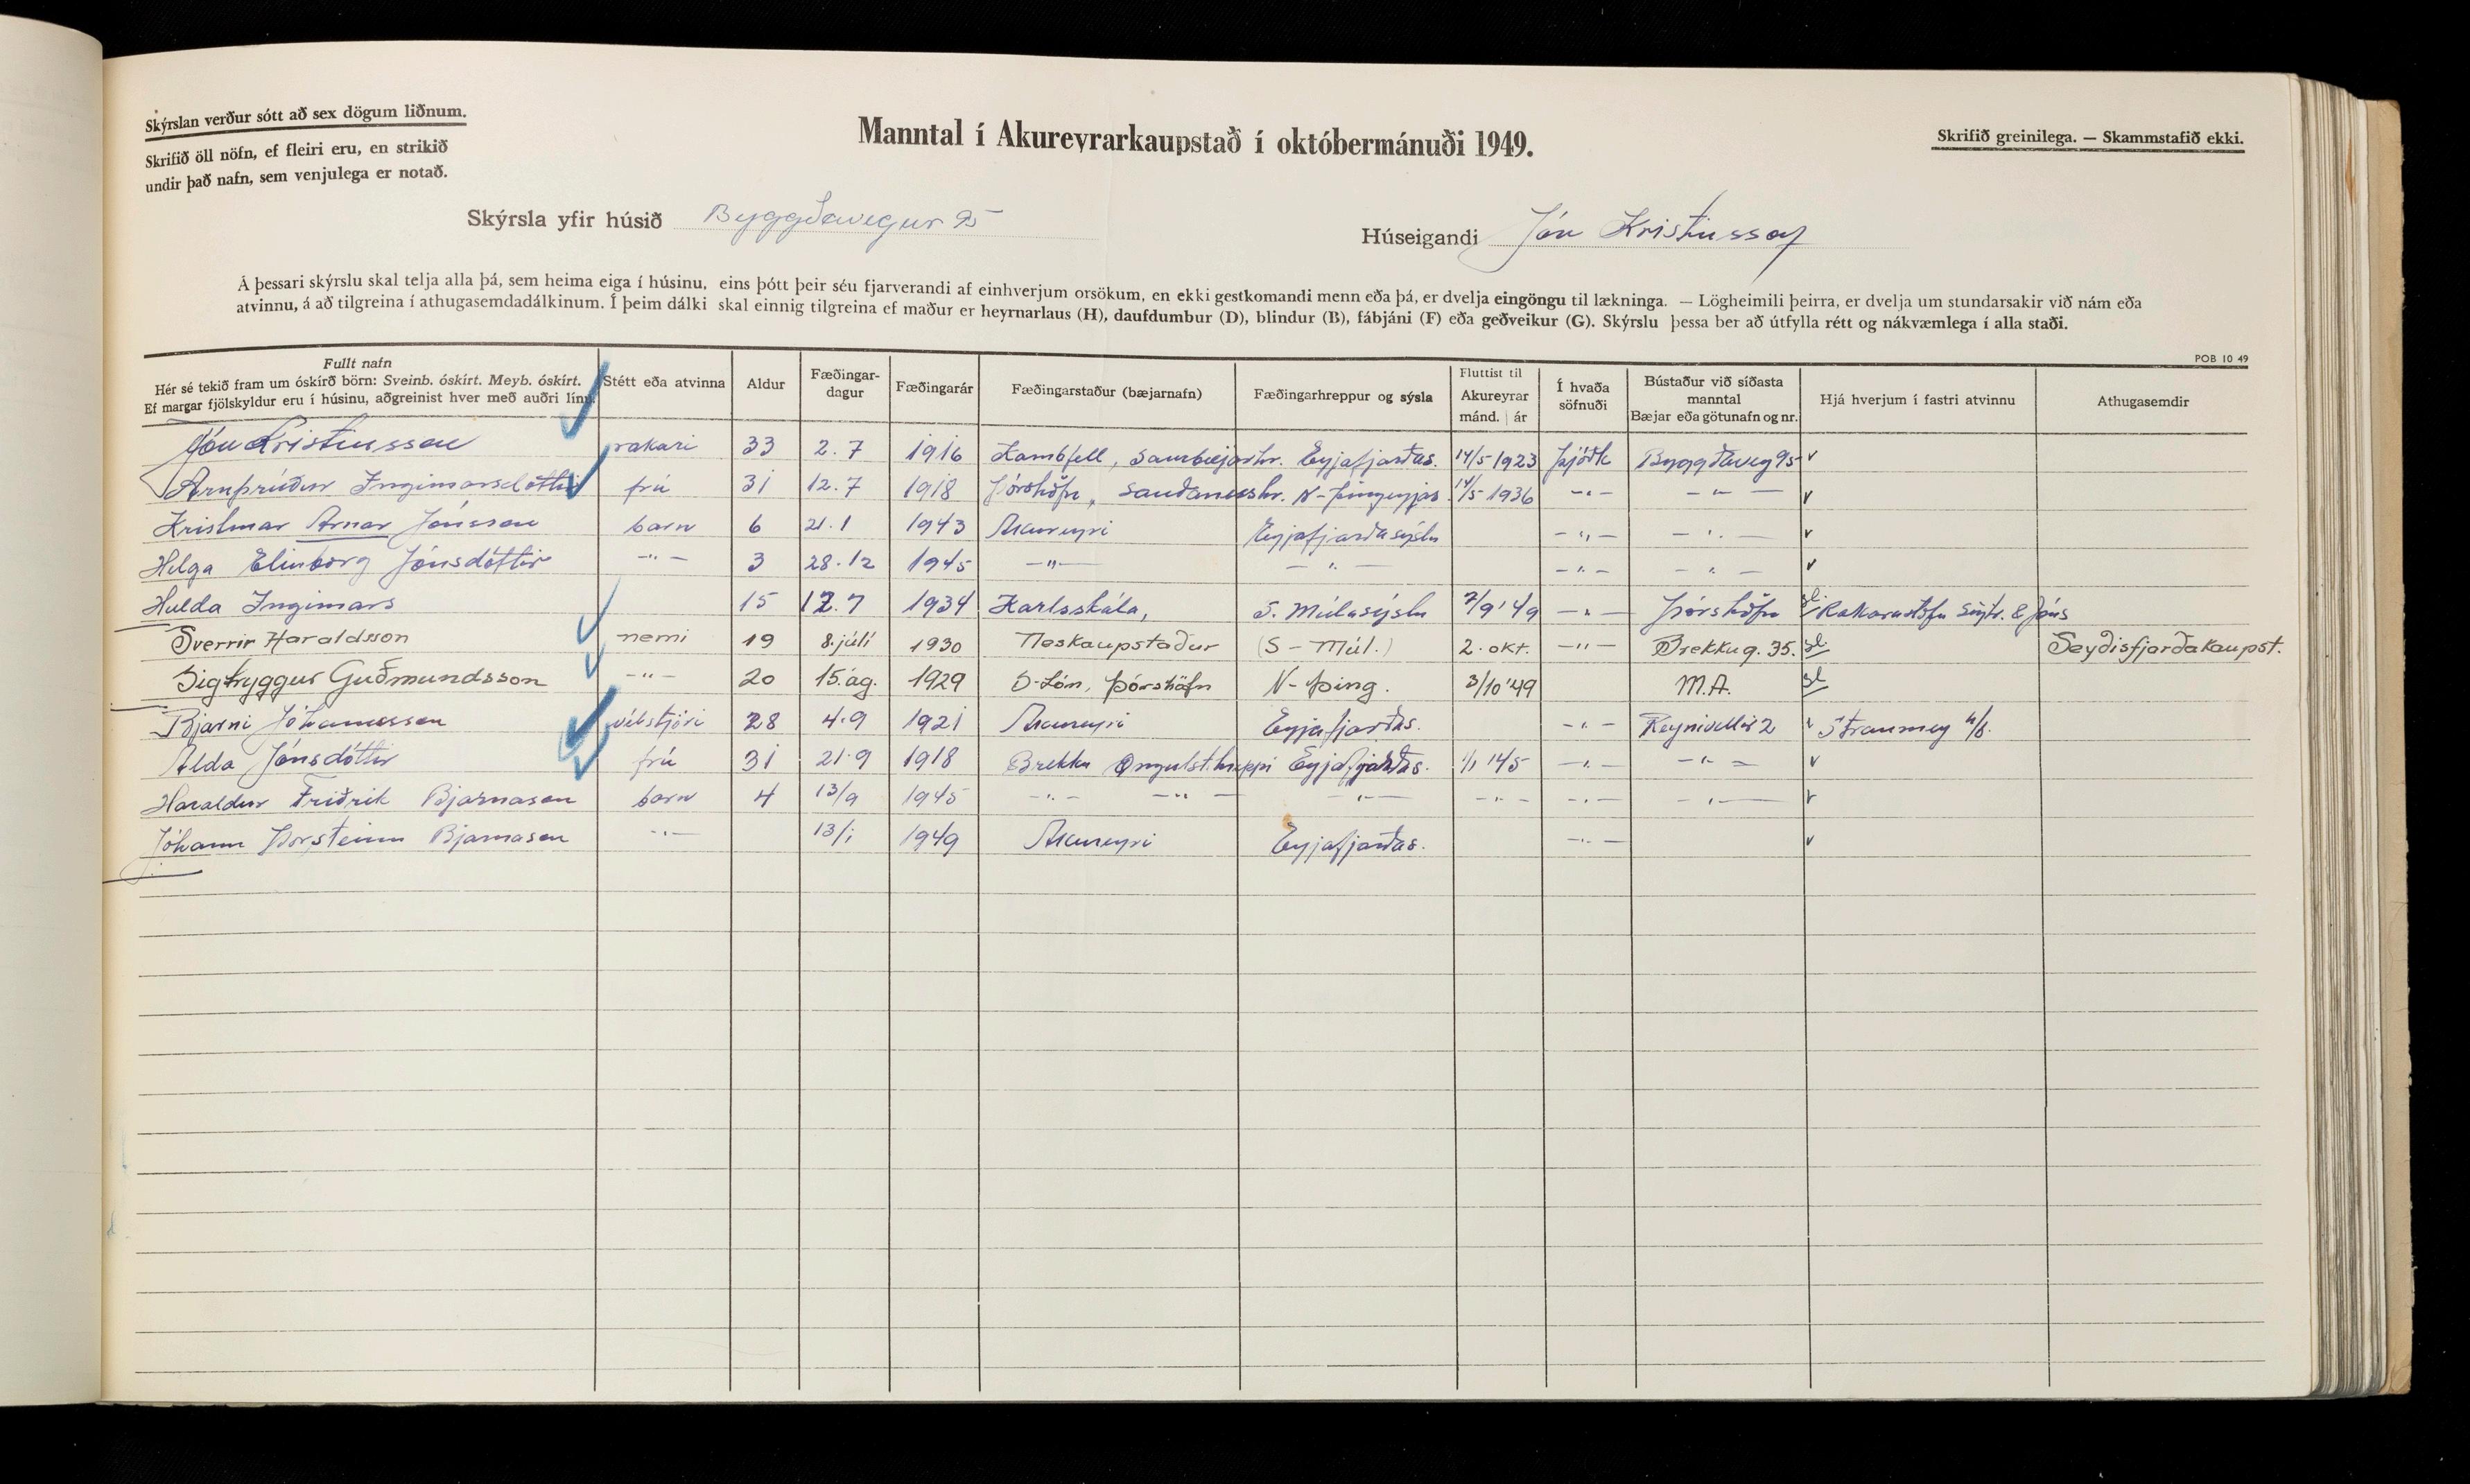 Skýrslan verður sótt að sex dögum liðnum.
Skrifið öll nöfn, ef fleiri eru, en strikið
undir það nafn, sem venjulega er notað.
Manntal í Akureyrarkaupstað í októbermánuði 1949.
Skrifið greinilega. — Skammstafið ekki.
Skýrsla yfir húsið Byggðavegur 95
Húseigandi Jón Kristinsson
Á þessari skýrslu skal telja alla þá, sem heima eiga í húsinu, eins þótt þeir séu fjarverandi af einhverjum orsökum, en ekki gestkomandi menn eða þá, er dvelja eingöngu til lækninga. — Lögheimili þeirra, er dvelja um stundarsakir við nám eða
atvinnu, á að tilgreina í athugasemdadálkinum. Í þeim dálki skal einnig tilgreina ef maður er heyrnarlaus (H), daufdumbur (D), blindur (B), fábjáni (F) eða geðveikur (G). Skýrslu þessa ber að útfylla rétt og nákvæmlega í alla staði.
POB 10 49
Fullt nafn
Hér sé tekið fram um óskírð börn: Sveinb. óskírt. Meyb. óskírt.
Ef margar fjölskyldur eru í húsinu, aðgreinist hver með auðri línu.
Stétt eða atvinna
Aldur
Fæðingar-
dagur
Fæðingarár
Fæðingarstaður (bæjarnafn)
Fæðingarhreppur og sýsla
Fluttist til
Akureyrar
mánd. | ár
Í hvaða
söfnuði
Bústaður við síðasta
manntal
Bæjar eða götunafn og nr.
Hjá hverjum í fastri atvinnu
Athugasemdir
Jón Kristinsson rakari 33 2.7 1916 Kambfell, Saurbæjarhr. Eyjafjarðas. 14/5 1923 Þjóðk Byggðaveg 95 v
Arnþrúður Ingimarsdóttir frú 31 12.7 1918 Þórshöfn, Sauðaneshr. N-Þingeyjas. 14/5 1936 -"- -"- v
Kristinar Arnar Jónsson barn 6 21.1 1943 Akureyri Eyjafjarðasýslu -"- -"- v
Helga Elinborg Jónsdóttir -"- 3 28.12 1945 -"- -"- -"- -"- v
Hulda Ingimars 15 12.7 1934 Karlsskála, S. Múlasýslu 2/9 '49 -"- Þórshöfn Rakarastofu Sigtr. & Jóns
Sverrir Haraldsson nemi 19 8. júlí 1930 Neskaupstaður (S-Múl.) 2. okt. -"- Brekkug. 35. Seyðisfjarðakaupst.
Sigtryggur Guðmundsson -"- 20 15. ág. 1929 S-Lón, Þórshöfn N-Þing. 3/10 '49 M.A.
Bjarni Jóhannesson vélstjóri 28 4.9 1921 Akureyri Eyjafjarðas. -"- Reynivellir 2 Straumey h/f.
Alda Jónsdóttir frú 31 21.9 1918 Brekku Öngulst.hreppi Eyjafjarðas. 1/1 '45 -"- -"- v
Haraldur Friðrik Bjarnason barn 4 13/9 1945 -"- -"- -"- -"- -"- -"- v
Jóhann Þorsteinn Bjarnason -"- 13/1 1949 Akureyri Eyjafjarðas. -"- v